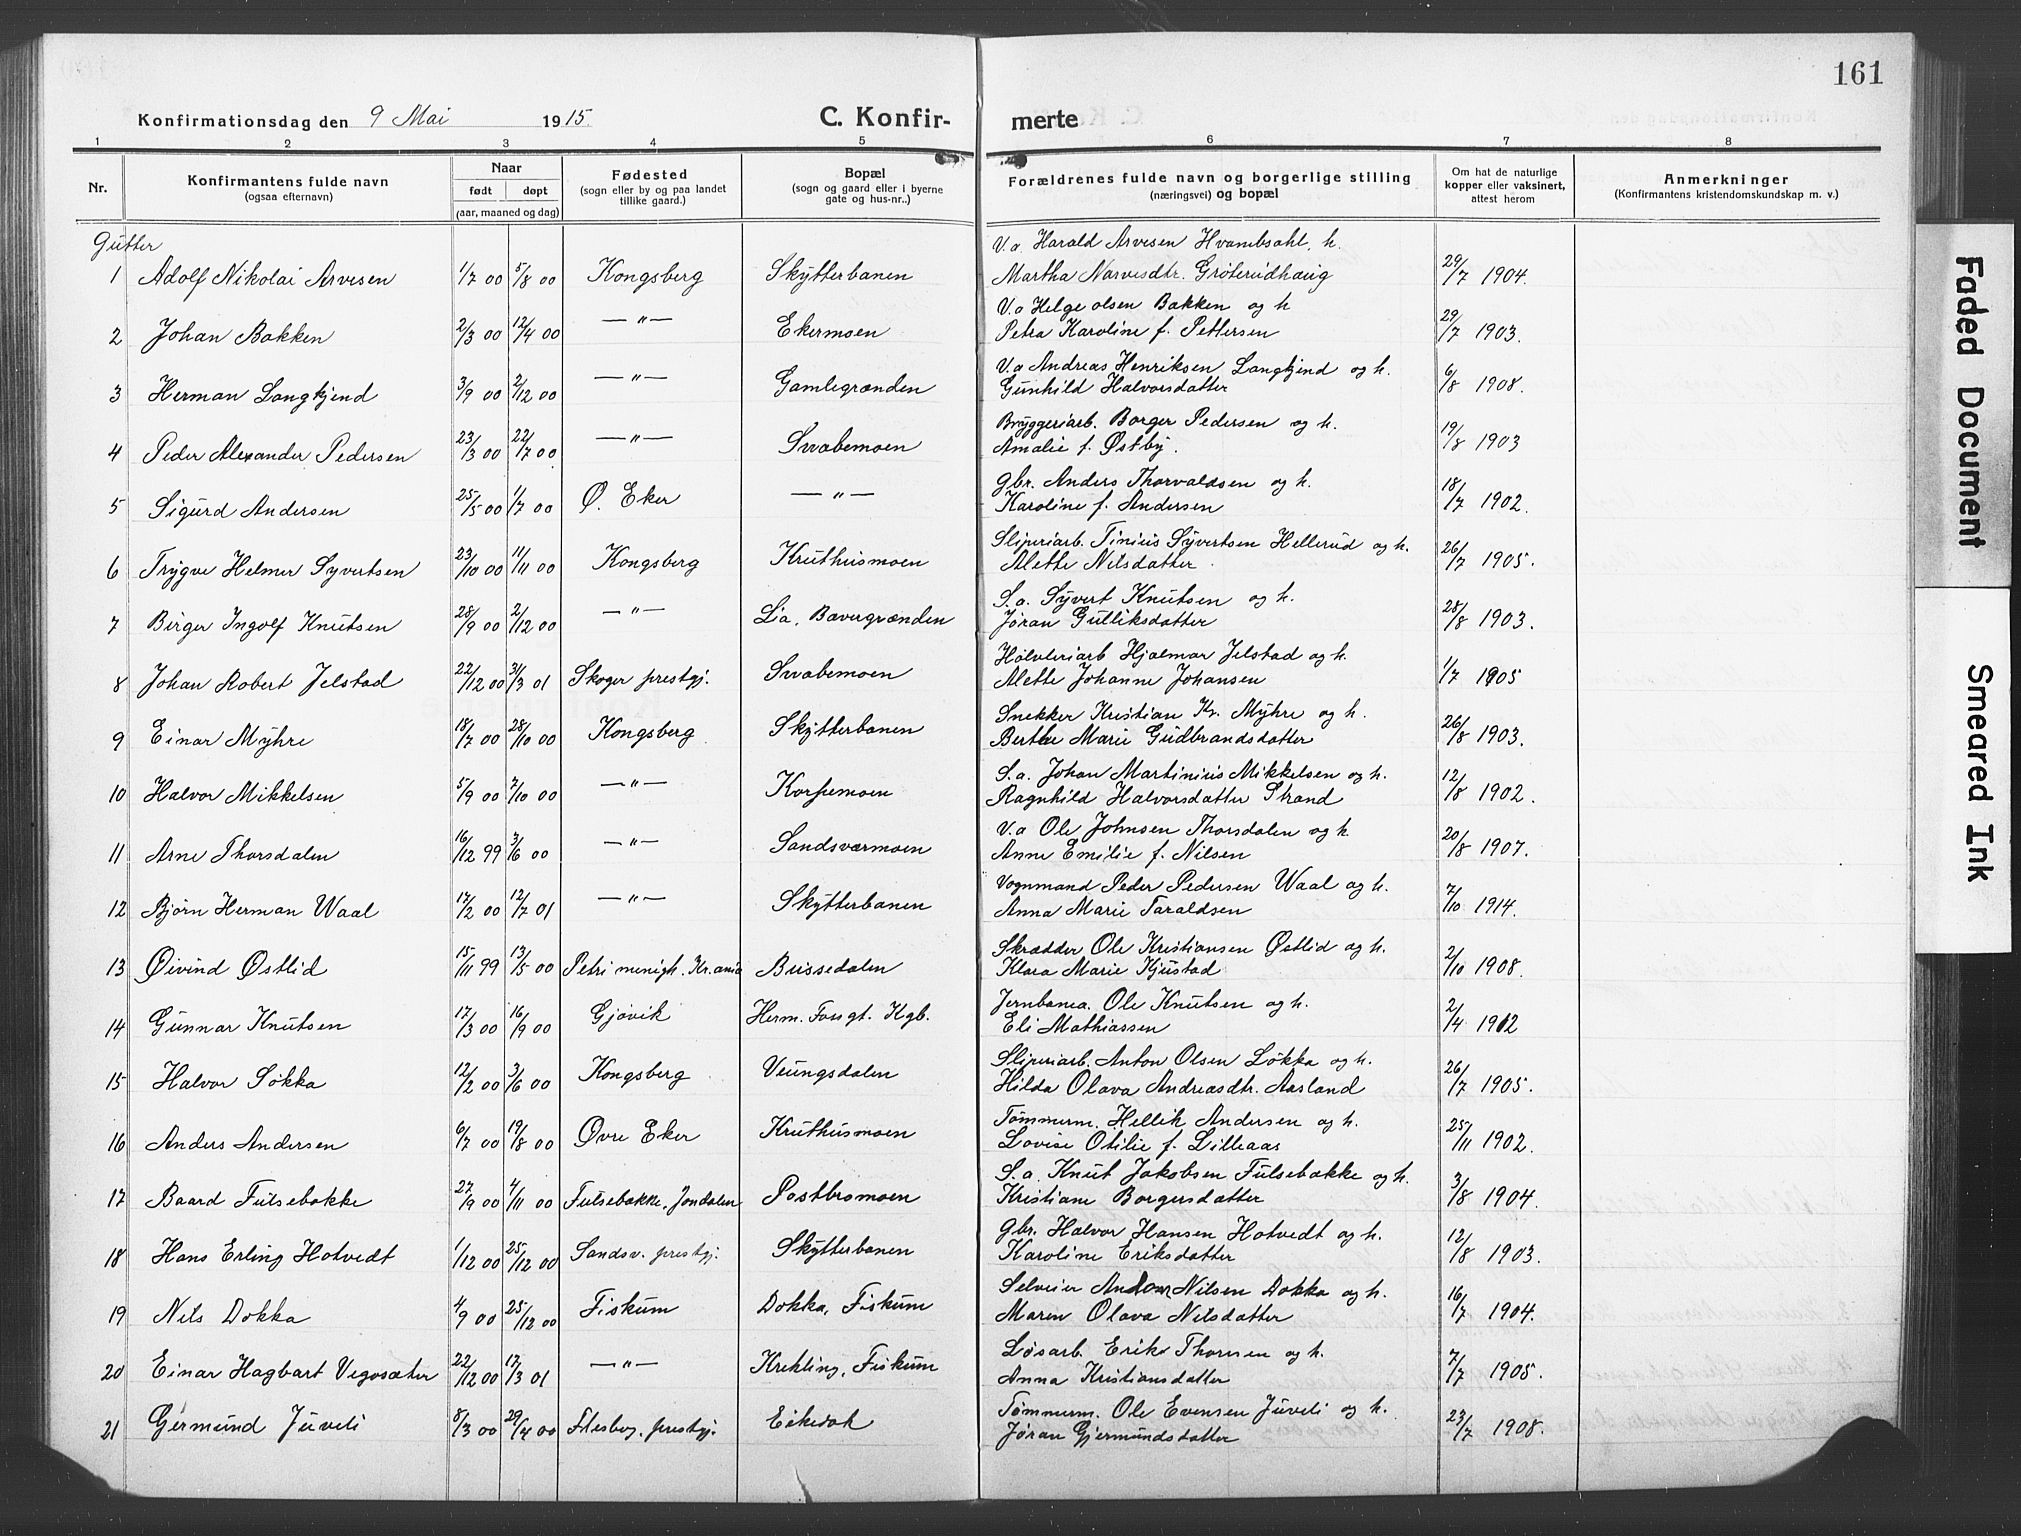 161
Konfirmationsdag den 9 Mai 1915.
C. Konfirmerte
1 2 3 4 5 6 7 8
Nr.
Konfirmantens fulde navn
(ogsaa efternavn)
Naar
født døpt
(aar, maaned og dag)
Fødested
(sogn eller by og paa landet
tillike gaard.)
Bopæl
(sogn og gaard eller i byerne
gate og hus-nr..)
Forældrenes fulde navn og borgerlige stilling
(næringsvei) og bopæl
Om hat de naturlige
kopper eller vaksinert,
attest herom
Anmerkninger
(Konfirmantens kristendomskundskap m. v.)
Gutter
V.a. Harald Arvesen Hvambsahl, h.
1 Adolf Nikolai Arvesen 1/7 00 5/8 00 Kongsberg Skytterbanen Martha Narvesdtr. Grøterudhaug 29/7 1904.
V.a Helge Olsen Bakken og h
2 Johan Bakken 2/3 00 12/4 00 —"— Ekermoen Petra Karoline f. Pettersen 29/7 1903.
V.a Andreas Henriksen Langkjend og h.
3 Herman Langkjend 3/9 00 2/12 00 —"— Gamlegrænden Gunhild Halvorsdatter 6/8 1908.
Bryggeriarb. Borger Pedersen og h.
4 Peder Alexander Pedersen 23/3 00 22/7 00 —"— Svabemoen Amalie f. Østby. 19/8 1903
gbr. Anders Thorvaldsen og h.
5 Sigurd Andersen 25/5 00 1/7 00 Ø. Eker —"— Karoline f. Andersen 18/7 1902.
Sliperiarb. Tinius Syvertsen Hellerud og h.
6 Trygve Helmer Syvertsen 23/10 00 11/11 00 Kongsberg Kruthusmoen Alette Nilsdatter 26/7 1905.
S.a. Syvert Knutsen og h.
7 Birger Ingolf Knutsen 28/9 00 2/12 00 —"— Lia, Bævergrænden Jøran Gulliksdatter 28/8 1903.
Høvleriarb Hjalmar Jelstad og h.
8 Johan Robert Jelstad 22/12 00 31/3 01 Skoger prestgj. Svabemoen Alette Johanne Johansen 1/7 1905
Snekker Kristian Kr. Myhre og h.
9 Einar Myhre 18/7 00 28/10 00 Kongsberg Skytterbanen Berthe Marie Gudbrandsdatter 26/8 1903.
S.a. Johan Martinius Mikkelsen og h.
10 Halvor Mikkelsen 5/9 00 7/10 00 —"— Korpemoen Ragnhild Halvorsdatter Strand 12/8 1902.
V.a Ole Johnsen Thorsdalen og h.
11 Arne Thorsdalen 16/12 99 3/6 00 —"— Sandsværmoen Anne Emilie f. Nilsen 20/8 1907.
Vognmand Peder Pedersen Waal og h.
12 Bjørn Herman Waal 17/2 00 12/7 01 —"— Skytterbanen Anna Marie Taraldsen 7/10 1914.
Skrædder Ole Kristiansen Østlid og h.
13 Øivind Østlid 15/11 99 13/5 00 Petri menigh. Kr.ania Bussedalen Klara Marie Kjustad 2/10 1908.
Jernbanea. Ole Knutsen og h.
14 Gunnar Knutsen 17/3 00 16/9 00 Gjøvik Herm. Fossgt. Kgb. Eli Mathiassen 2/4 1912
Sliperiarb. Anton Olsen Løkka og h.
15 Halvor Løkka 12/2 00 3/6 00 Kongsberg Veungsdalen Hilda Olava Andreasdtr. Aasland 26/7 1905.
Tømmerm. Hellik Andersen og h.
16 Anders Andersen 6/7 00 19/8 00 Øvre Eker Kruthusmoen Lovise Otilie f. Lilleaas 25/11 1902.
S.a. Knut Jakobsen Fulsebakke og h.
17 Baard Fulsebakke 27/9 00 4/11 00 Fulsebakke, Jondalen Postbromoen Kristiane Borgersdatter 3/8 1904.
gbr. Halvor Hansen Hotvedt og h.
18 Hans Erling Hotvedt 1/12 00 25/12 00 Sandsv. prestgj. Skytterbanen Karoline Eriksdatter 12/8 1903.
Selveier Andor Nilsen Dokka og h.
19 Nils Dokka 4/9 00 25/12 00 Fiskum Dokka, Fiskum Maren Olava Nilsdatter 16/7 1904.
Løsarb. Erik Thoresen og h.
20 Einar Hagbart Vegosæter 22/12 00 17/3 01 —"— Krekling, Fiskum Anna Kristiansdatter 7/7 1905.
Tømmerm. Ole Evensen Juveli og h.
21 Germund Juveli 8/3 00 29/4 00 Flesberg. prestgj. Eikedok Jøran Gjermundsdatter 23/7 1908.
Faded Document
Smeared Ink